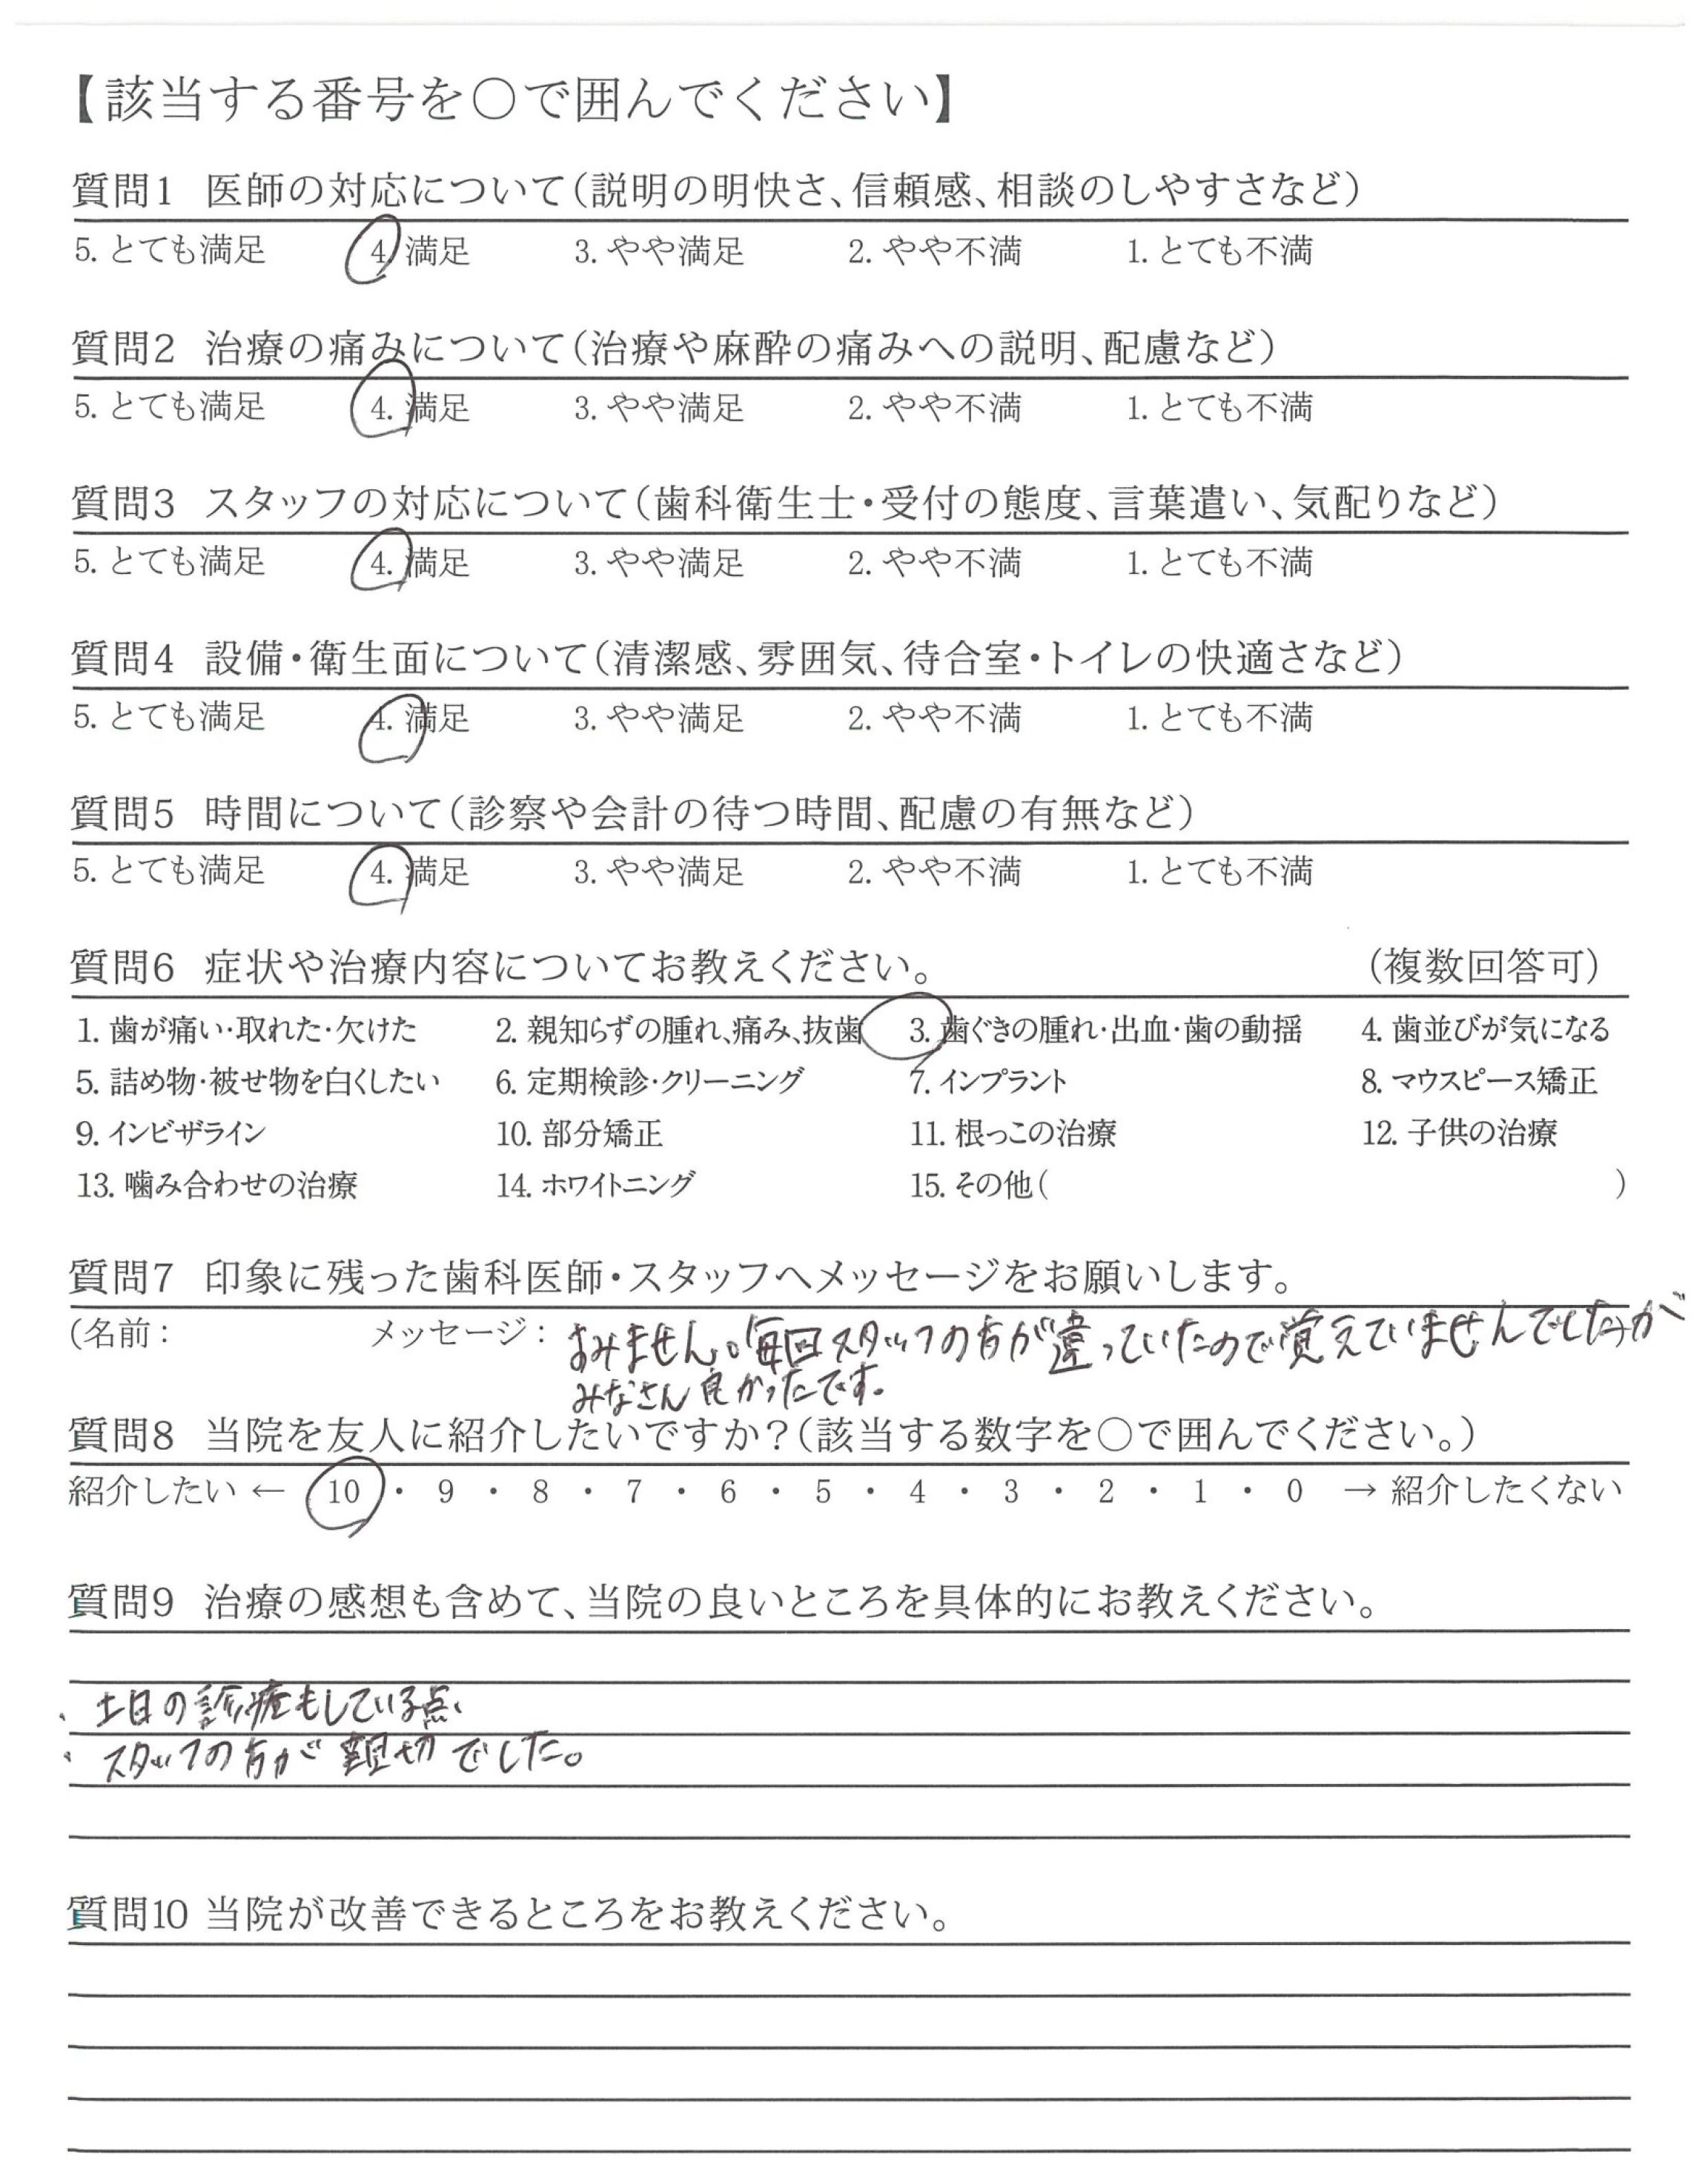 【該当する番号を〇で囲んでください】
質問1 医師の対応について(説明の明快さ、信頼感、相談のしやすさなど)
5. とても満足 4. 満足 3. やや満足 2. やや不満 1. とても不満
質問2 治療の痛みについて(治療や麻酔の痛みへの説明、配慮など)
5. とても満足 4. 満足 3. やや満足 2. やや不満 1. とても不満
質問3 スタッフの対応について(歯科衛生士・受付の態度、言葉遣い、気配りなど)
5. とても満足 4. 満足 3. やや満足 2. やや不満 1. とても不満
質問4 設備・衛生面について(清潔感、雰囲気、待合室・トイレの快適さなど)
5. とても満足 4. 満足 3. やや満足 2. やや不満 1. とても不満
質問5 時間について(診察や会計の待つ時間、配慮の有無など)
5. とても満足 4. 満足 3. やや満足 2. やや不満 1. とても不満
質問6 症状や治療内容についてお教えください。 (複数回答可)
1. 歯が痛い・取れた・欠けた 2. 親知らずの腫れ、痛み、抜歯 3. 歯ぐきの腫れ・出血・歯の動揺 4. 歯並びが気になる
5. 詰め物・被せ物を白くしたい 6. 定期検診・クリーニング 7. インプラント 8. マウスピース矯正
9. インビザライン 10. 部分矯正 11. 根っこの治療 12. 子供の治療
13. 噛み合わせの治療 14. ホワイトニング 15. その他( )
質問7 印象に残った歯科医師・スタッフへメッセージをお願いします。
(名前: メッセージ: すみません。毎回スタッフの方が違っていたので覚えていませんでしたが
みなさん良かったです。
質問8 当院を友人に紹介したいですか?(該当する数字を〇で囲んでください。)
紹介したい ← 10 ・ 9 ・ 8 ・ 7 ・ 6 ・ 5 ・ 4 ・ 3 ・ 2 ・ 1 ・ 0 → 紹介したくない
質問9 治療の感想も含めて、当院の良いところを具体的にお教えください。
、土日の診療もしている点、
、スタッフの方が親切でした。
質問10 当院が改善できるところをお教えください。